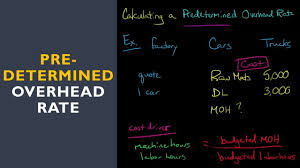 PRE-
DETERMINED
OVERHEAD
RATE
Calculating a Predetermined Overhead Rate
Ex. Factory Cars Trucks
Cost
quote Raw Mats 5,000
1 car DL 3,000
MOH ?
cost driver
machine hours = budgeted MOH
labor hours budgeted labor hours